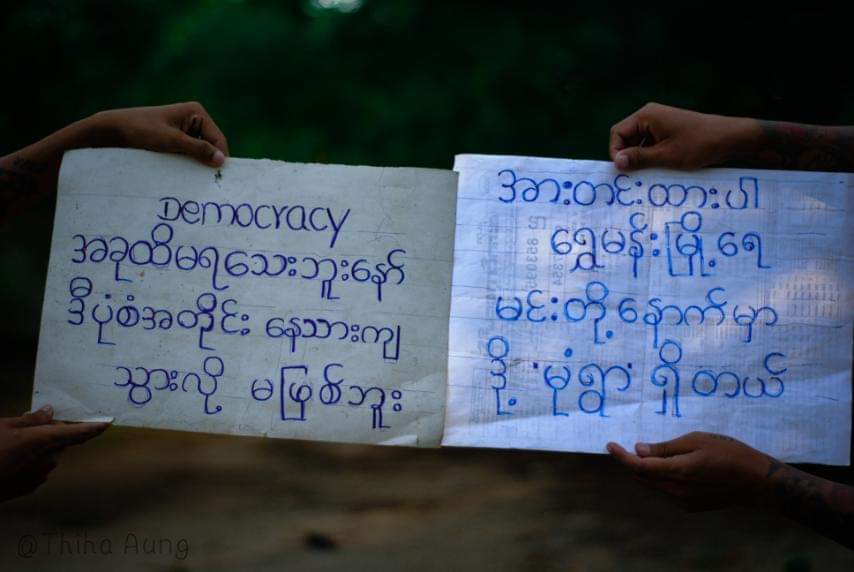 Democracy
အခုထိမရသေးဘူးနော်
ဒီပုံစံအတိုင်း နေသားကျ
သွားလို့ မဖြစ်ဘူး
အားတင်းထားပါ
ရွှေမန်းမြို့ရေ
မင်းတို့နောက်မှာ
ဒို့ 'မုံရွာ' ရှိတယ်
@Thiha Aung